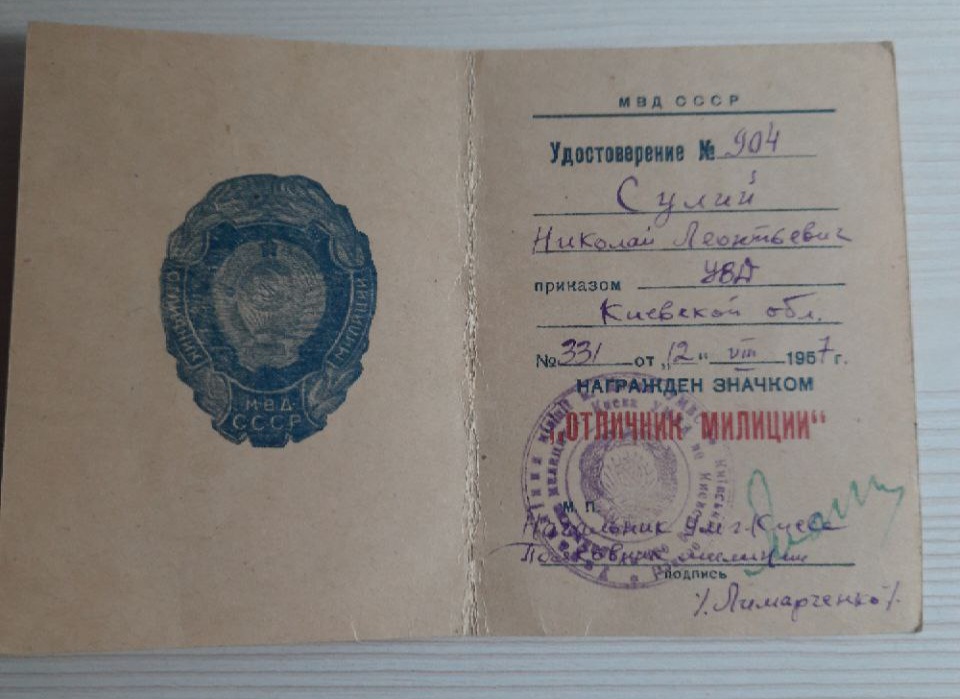 ОТЛИЧНИК МИЛИЦИИ
МВД
СССР
МВД СССР
Удостоверение № 904
Сулий
Николай Леонтьевич
приказом УВД
Киевской обл.
№ 331 от "12" VIII 1957 г.
НАГРАЖДЕН ЗНАЧКОМ
„ОТЛИЧНИК МИЛИЦИИ“
М. П.
Начальник УМ г. Киева
Полковник милиции
подпись
/. Лимарченко /.